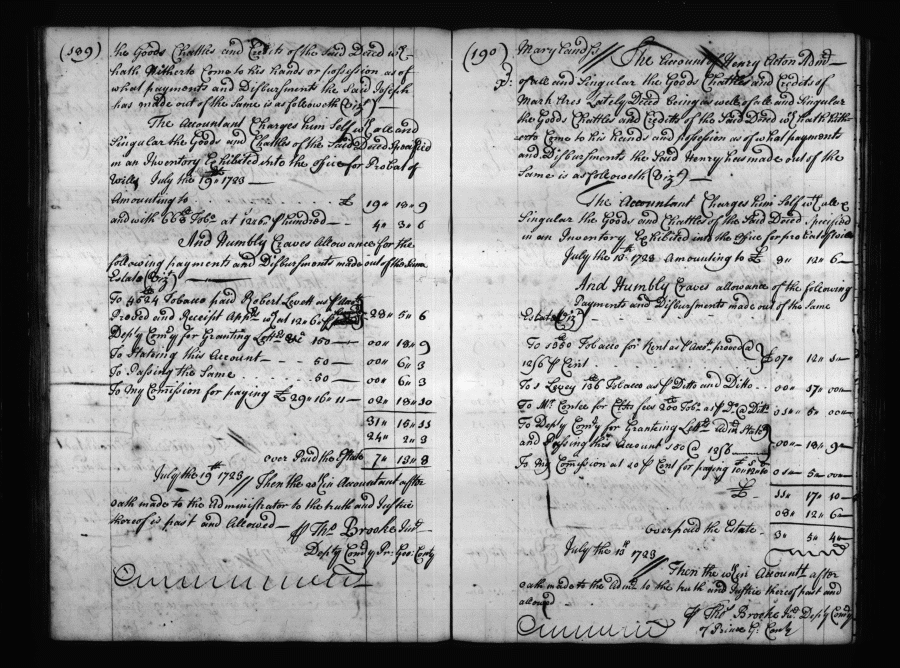 (189)
the Goods Chattles and Credits of the Said Deced wch
hath hitherto Come to his hands or possession as of
what payments and Disbursments the Said Joseph
has made out of the Same is as followeth (Viz)
The Accountant Charges him Self wth all and
Singular the Goods and Chattles of the Said Deced Specified
in an Inventory Exhibited into the office for Probat of
Wills July the 19th 1723
Amounting to £ 19 " 18 " 9
and with 668 Tobo. at 12/6 p hundred 4 " 3 " 6
And Humbly Craves Allowance for the
following payments and Disbursments made out of the Same
Estate (Viz)
To 4524 Tobacco paid Robert Levett as p Acct
Proved and Receipt Appears at 12/6 28 " 5 " 6
Depty Comry for Granting Lettrs &c 150 00 " 18 " 9
To Stateing this Account 50 00 " 6 " 3
To Passing the Same 50 00 " 6 " 3
To my Comission for paying £ 29 " 16 " 11 02 " 19 " 10
31 " 16 " 11
24 " 2 " 3
over Paid the Estate 7 " 13 " 8
July the 19th 1723 // Then the within Accountant after
oath made to the Administrator to the truth and Justice
thereof is past and Allowed
p Thos Brooke Junr
Depty Comry Pr: Geo: Conty
(190)
Maryland ss // The Account of Henry Acton Admr
p: of all and Singular the Goods Chattles and Credits of
Mark Ares Lately Deced being as well of all and Singular
the Goods Chattles and Credits of the Said Deced wch hath hith-
erto Come to his hands and possession as of what payments
and Disbursments the Said Henry has made out of the
Same is as followeth (Viz)
The Accountant Charges him Self wth all &
Singular the Goods and Chattles of the Said Deced Specified
in an Inventory Exhibited into the office for probat of wills
July the 10th 1723 Amounting to £ 8 " 12 " 6
And Humbly Craves allowance of the following
Payments and Disbursments made out of the Same
Estate (Viz)
To 1250 Tobacco for Rent as p Acct. proved @
12/6 p Cent £ 07 " 12 " 1
To 1 Levey 136 Tobacco as p Ditto and Ditto 00 " 17 " 00
To Mr Contee for Clks fees 200 Tobo as p Do @ Ditto 01 " 5 " 00
To Depty Comry for Granting Lettrs Admr State
and Passing this Account 150 @ 12/6 00 " 18 " 9
To my Comission at 10 p Cent for paying 01 " 5 " 00
£ 11 " 17 " 10
08 " 12 " 6
overpaid the Estate 3 " 5 " 4
July the 10th 1723
// Then the within Accountt after
oath made to the Admr. to the truth and Justice thereof past and
allowed
p Thos Brooke Jr. Depty Comry
of Prince G: Conty